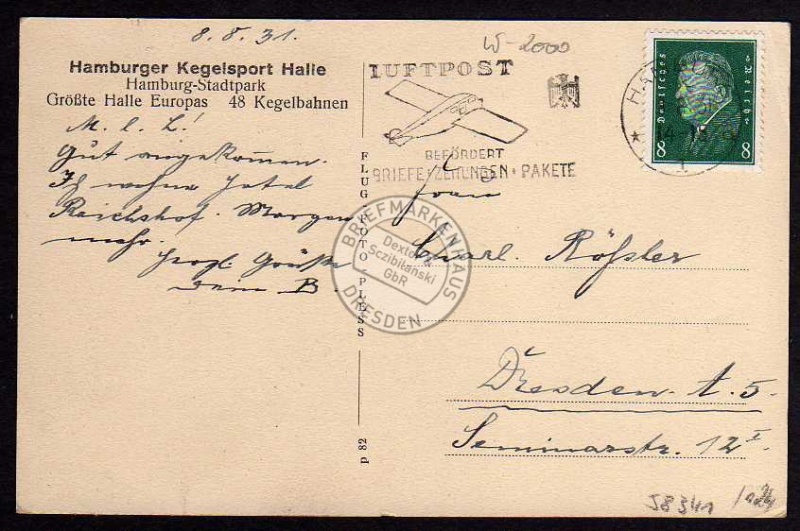 8.8.31.
W-2000
Hamburger Kegelsport Halle
Hamburg-Stadtpark
Größte Halle Europas 48 Kegelbahnen
M. l. L!
Gut angekommen.
Ich wohne Hotel
Reichshof. Morgen
mehr.
Herzl. Grüße
Dein B.
LUFTPOST
BEFÖRDERT
BRIEFE·ZEITUNGEN·PAKETE
Deutsches Reich
8 8
FLUG-FOTO-PLESS
p 82
BRIEFMARKENHAUS
Dextor &
Sczibilański
GbR
DRESDEN
Frau
Carl Rößler
Dresden-A. 5
Seminarstr. 12 I
58341